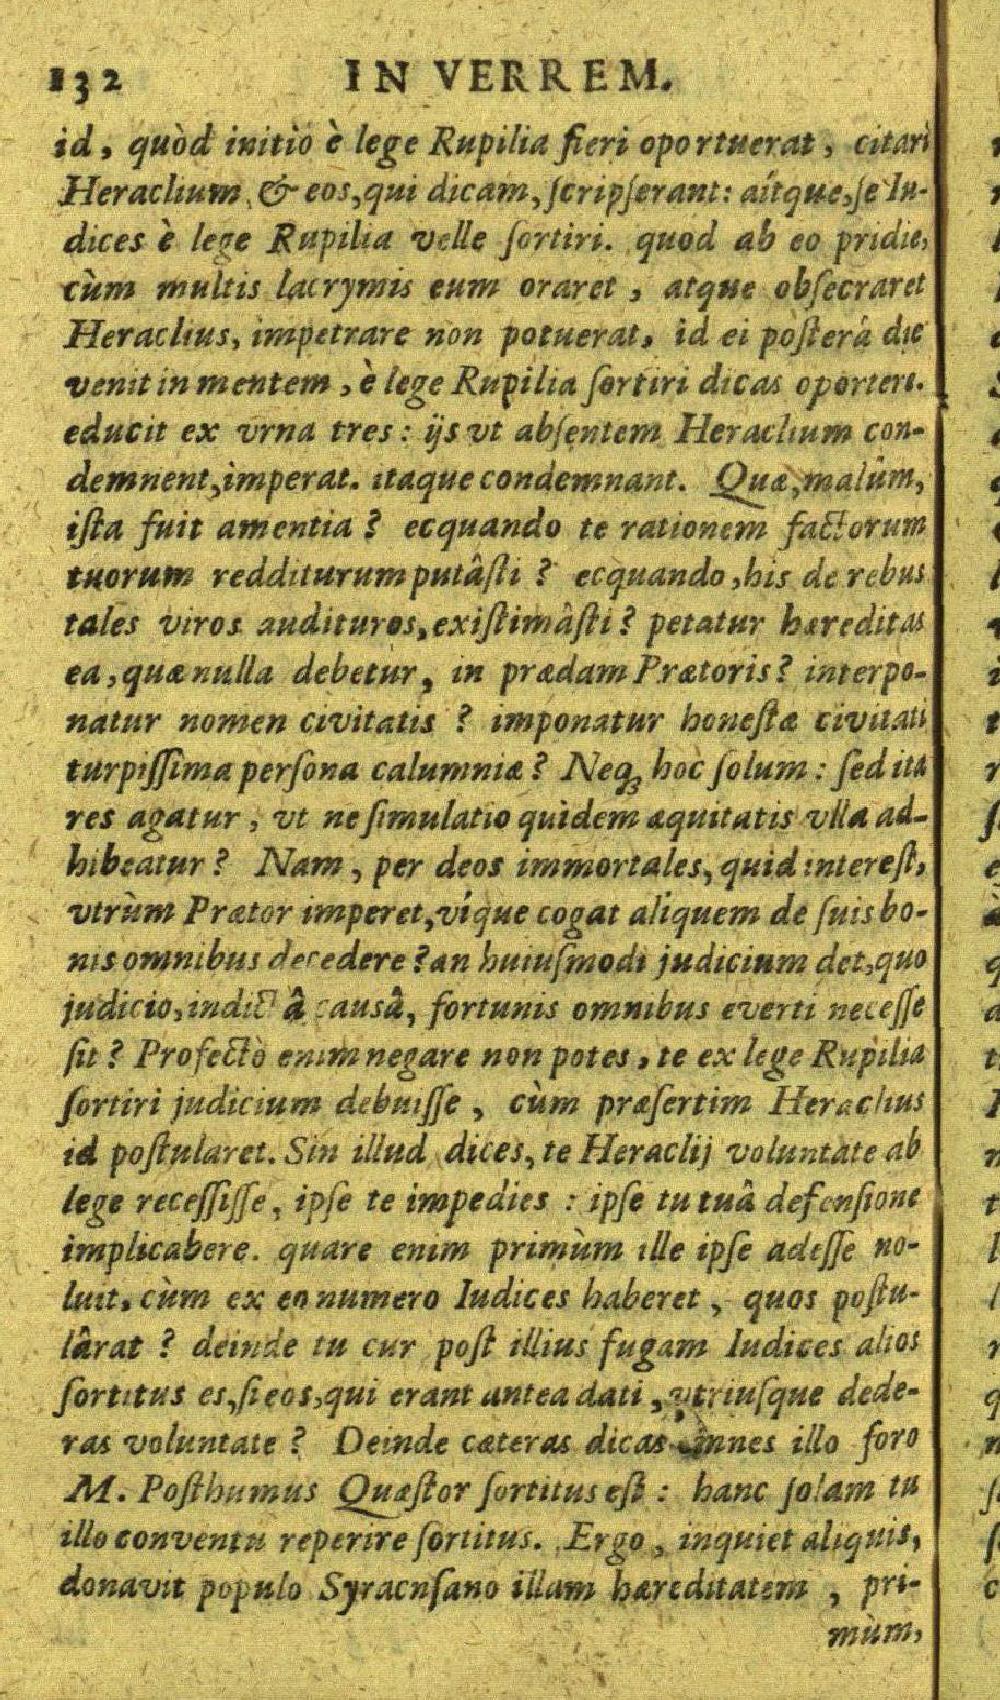 132 IN VERREM.
id, quòd initio è lege Rupilia fieri oportuerat, citari
Heraclium & eos, qui dicam, ſcripſerant: aítque, ſe Iu-
dices è lege Rupilia velle ſortiri. quod ab eo pridie,
cùm multis lacrymis eum oraret, atque obſecraret
Heraclius, impetrare non potuerat, id ei poſterâ die
venit in mentem, è lege Rupilia ſortiri dicas oportere.
educit ex vrna tres: ijs vt abſentem Heraclium con-
demnent, imperat. itaque condemnant. Quæ, malùm,
iſta fuit amentia? ecquando te rationem factorum
tuorum redditurum putâſti? ecquando, his de rebus
tales viros audituros, exiſtimâſti? petatur hæreditas
ea, quæ nulla debetur, in prædam Prætoris? interpo-
natur nomen civitatis? imponatur honeſtæ civitati
turpiſſima perſona calumniæ? Neq; hoc ſolum: ſed ita
res agatur, vt ne ſimulatio quidem æquitatis vlla ad-
hibeatur? Nam, per deos immortales, quid intereſt,
vtrùm Prætor imperet, víque cogat aliquem de ſuis bo-
nis omnibus decedere? an huiuſmodi judicium det, quo
judicio, indictâ causâ, fortunis omnibus everti neceſſe
ſit? Profectò enim negare non potes, te ex lege Rupilia
ſortiri judicium debuiſſe, cùm præſertim Heraclius
id poſtularet. Sin illud dices, te Heraclij voluntate ab
lege receſſiſſe, ipſe te impedies: ipſe tu tuâ defenſione
implicabere. quare enim primùm ille ipſe adeſſe no-
luit, cùm ex eo numero Iudices haberet, quos poſtu-
lârat? deinde tu cur poſt illius fugam Iudices alios
ſortitus es, ſi eos, qui erant antea dati, vtriuſque dede-
ras voluntate? Deinde cæteras dicas omnes illo foro
M. Poſthumus Quæſtor ſortitus eſt: hanc ſolam tu
illo conventu reperire ſortitus. Ergo, inquiet aliquis,
donavit populo Syracuſano illam hæreditatem, pri-
mùm,